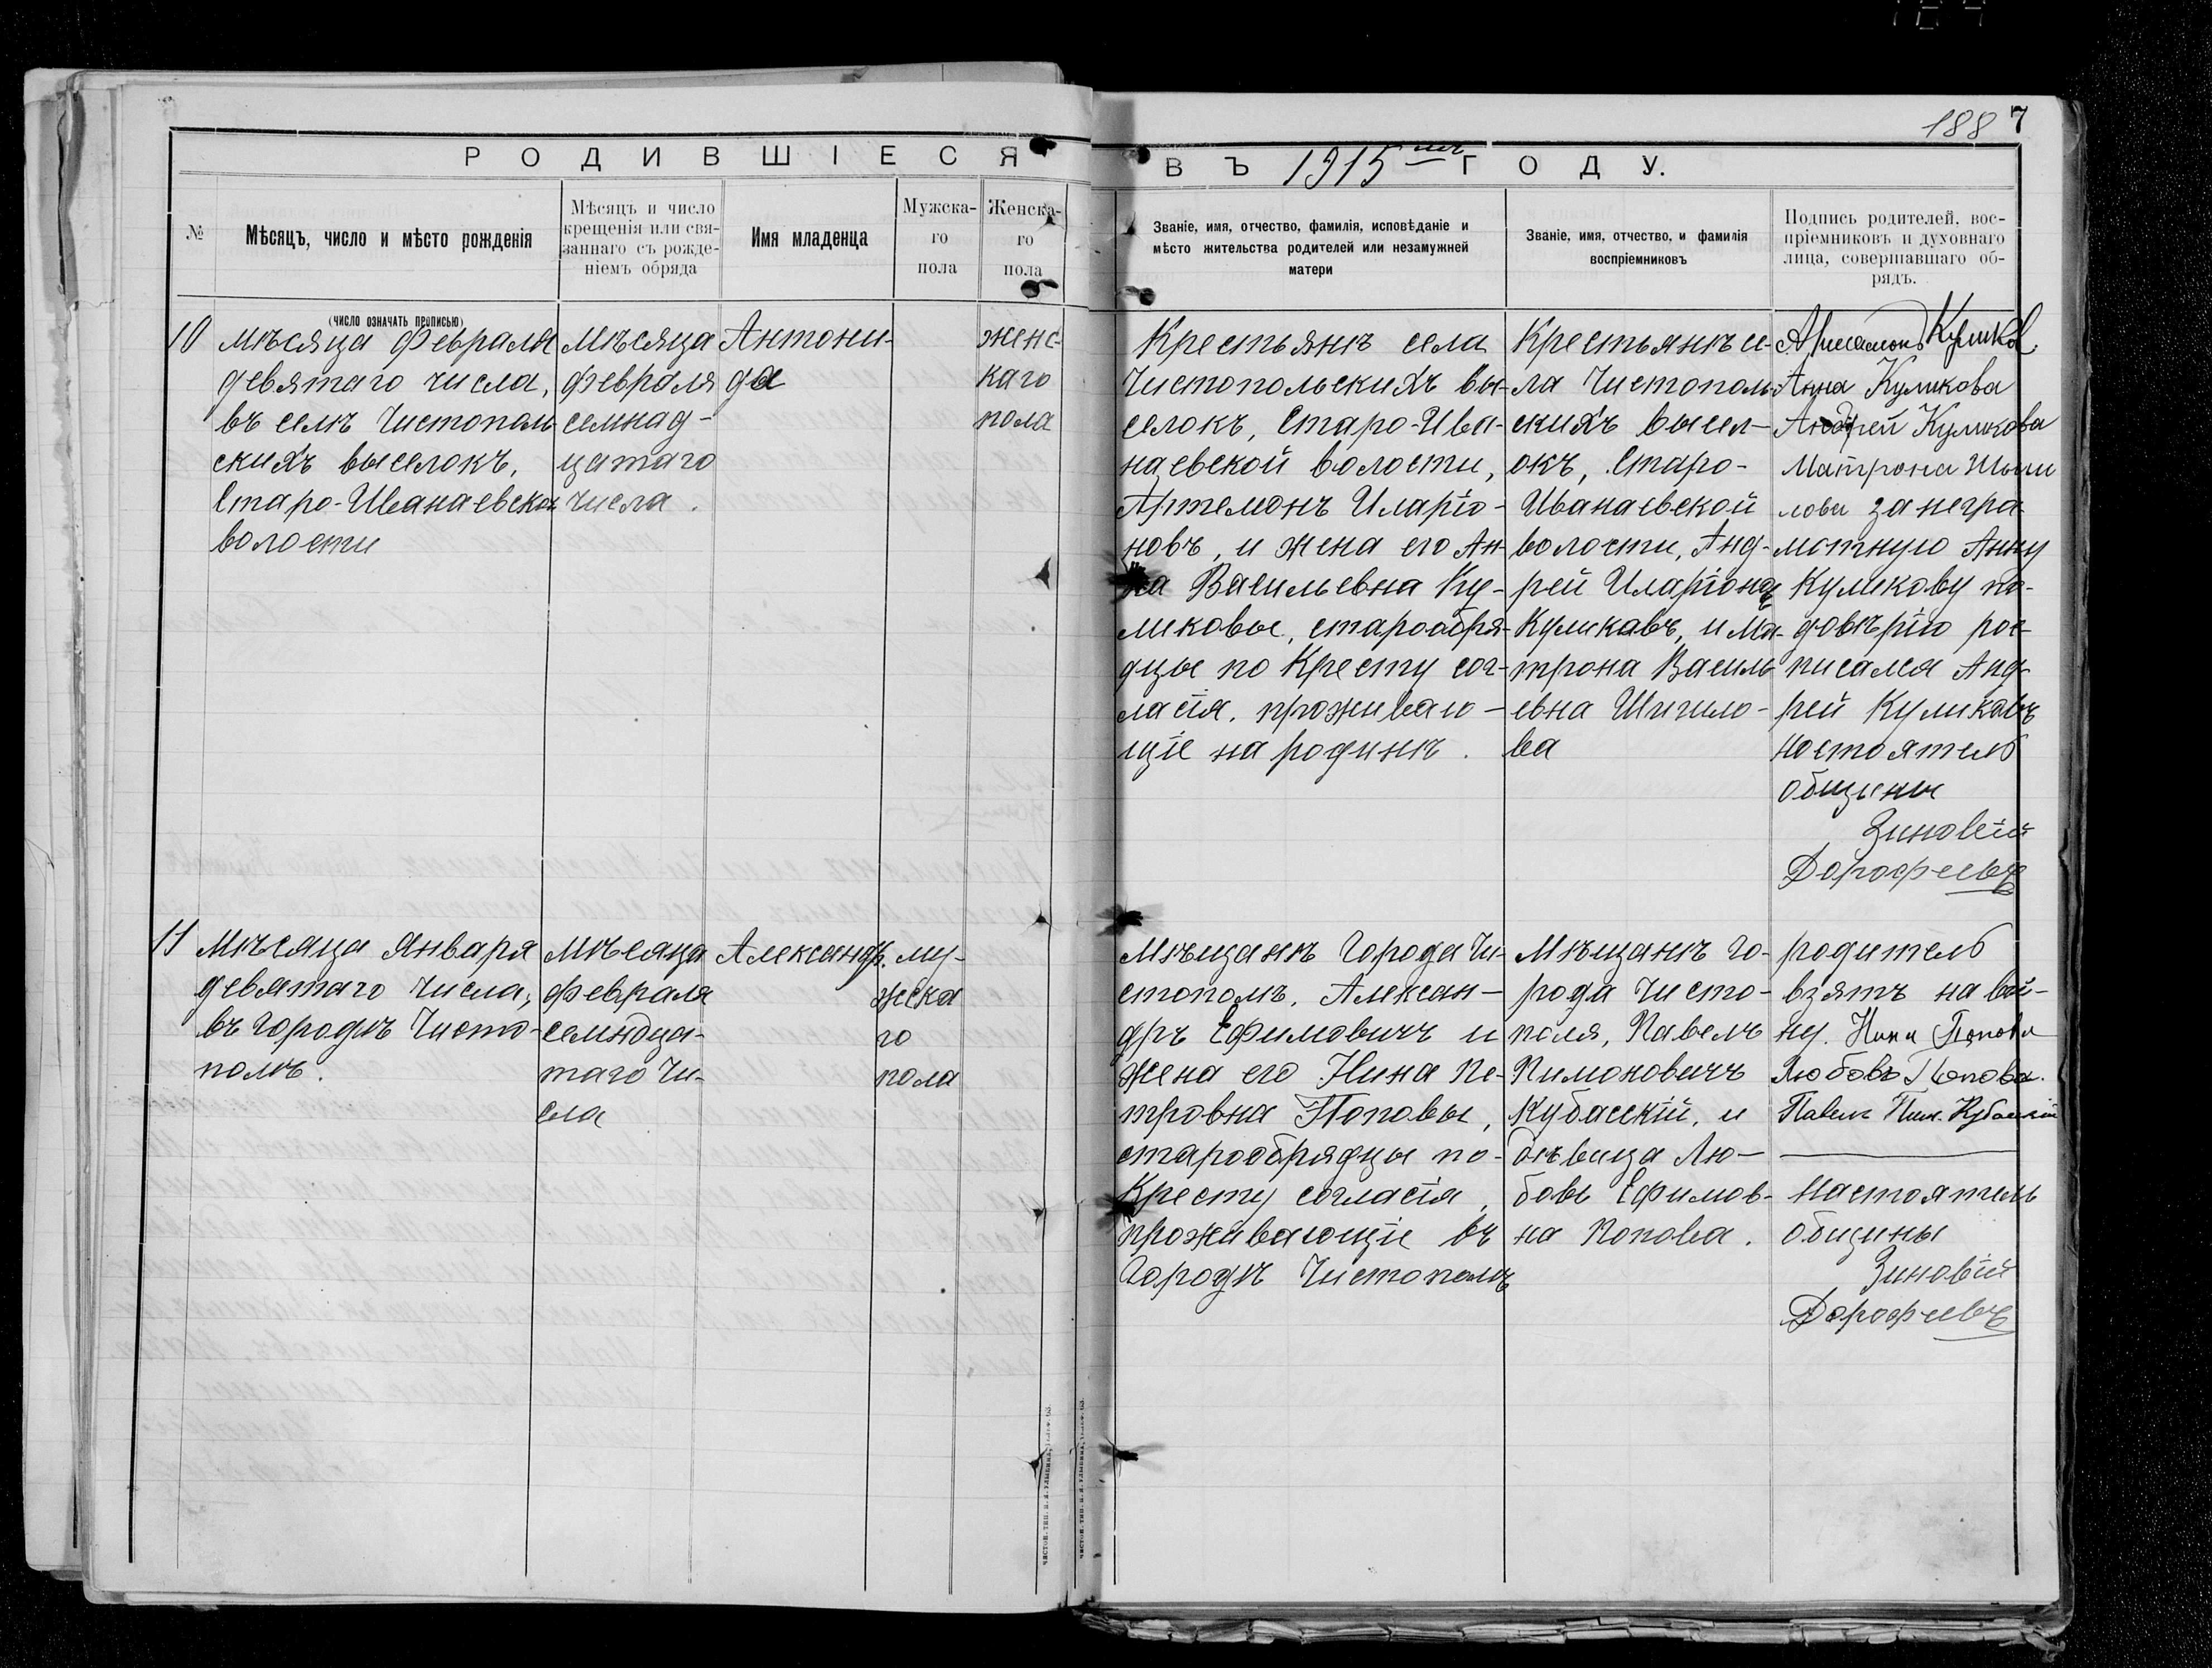 188 7
РОДИВШІЕСЯ
ВЪ 1915 мъ ГОДУ.
№
Мѣсяцъ, число и мѣсто рожденія
Мѣсяцъ и число
крещенія или свя-
заннаго съ рожде-
ніемъ обряда
Имя младенца
Мужска-
го
пола
Женска-
го
пола
Званіе, имя, отчество, фамилія, исповѣданіе и
мѣсто жительства родителей или незамужней
матери
Званіе, имя, отчество, и фамилія
воспріемниковъ
Подпись родителей, вос-
пріемниковъ и духовнаго
лица, совершавшаго об-
рядъ.
(число означать прописью)
10
мѣсяца Февраля
девятаго числа,
въ селѣ Чистополь
скихъ выселокъ,
Старо-Иванаевской
волости
мѣсяца
февраля
семнад-
цатаго
числа.
Антони-
да
женс-
каго
пола
Крестьянѣ села
Чистопольскихъ вы-
селокъ, Старо-Ива-
наевской волости,
Артемонъ Иларіо-
новъ, и жена его Ан-
на Васильевна Ку-
ликовы, старообря-
дцы по Кресту сог-
ласія, проживаю-
щіе на родинѣ.
Крестьянѣ се-
ла Чистополь-
скихъ высел-
окъ, Старо-
Иванаевской
волости, Анд-
рей Иларіоновъ
Куликавъ, и Ма-
трона Василь
евна Шигило-
ва
Куликов
Анна Куликова
Андрей Куликова
Матрона Шиги
лова за негра
мотную Анну
Куликову по-
довѣрію рос-
писался Анд-
рей Куликавъ
Ностоятель
общины
Зиновій
Дорофеевъ
11
Мѣсяца Января
девятаго числа,
въ городѣ Чисто-
полѣ.
мѣсяца
февраля
семндца-
таго Чи-
сла
Александръ.
му-
жска
го
пола
Мѣщанѣ Города Чи-
стополь, Алексан-
дръ Ефимовичъ и
жена его Нина Пе-
тровна Поповы,
старообрядцы по-
Кресту согласія,
проживающіе въ
Городѣ Чистополѣ
Мѣщанѣ Го-
рода Чисто-
поля, Павелъ
Пимоновичъ
Кубасскій, и
дѣвица Лю-
бовь Ефимов-
на Попова.
родитель
взятъ на вой-
ну. Нина Попова
Любовь Попова.
Павелъ Пим. Кубасскій
Настоятель
общины
Зиновій
Дорофеевъ